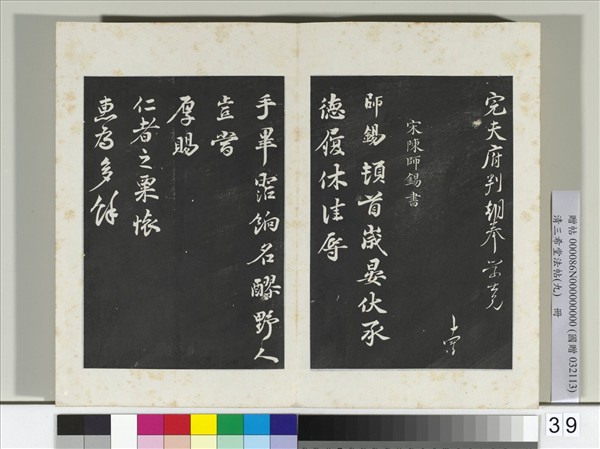 完夫府判朝奉學士兄
宋陳師錫書
師錫頓首歲晏伏承
德履休佳辱
手畢貺餉名醪野人
豈嘗
厚賜
仁者之粟愧
惠為多餘
贈帖 000086N000000000 (國贈 032113)
清三希堂法帖(九) 冊
39